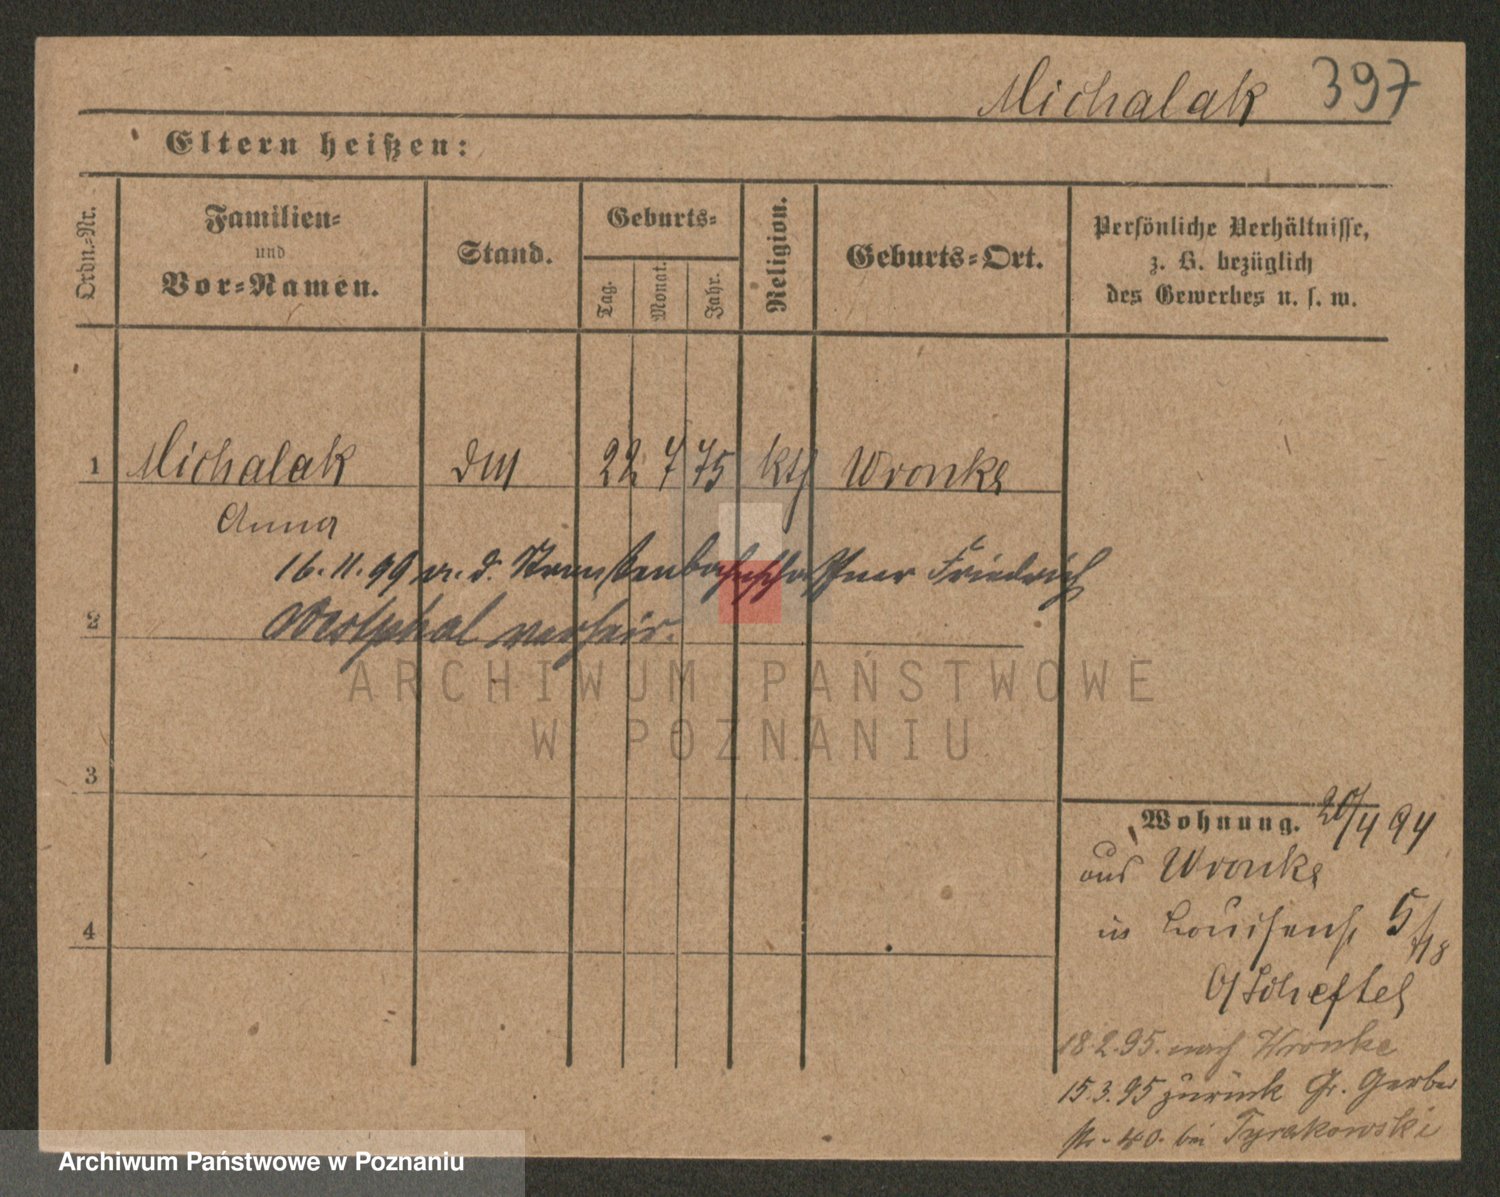 Michalak 397
Eltern heißen:
Ordn.-Nr.
Familien-
und
Vor-Namen.
Stand.
Geburts-
Tag.
Monat.
Jahr.
Religion.
Geburts-Ort.
Persönliche Verhältnisse,
z. B. bezüglich
des Gewerbes u. s. w.
1 Michalak 22 7 75 kth Wronke
Anna
16.11.99 m. d. Straußenbahnschaffner Friedrich
2 Westphal verheir.
ARCHIWUM PAŃSTWOWE
W POZNANIU
3
Wohnung. 20/4 94
aus Wronke
4
in Louisenst 5/
b/ Scheftel
18.2.95. nach Wronke
15.3.95 zurück Gr. Gerber
str. 40. bei Tyrakowski
Archiwum Państwowe w Poznaniu